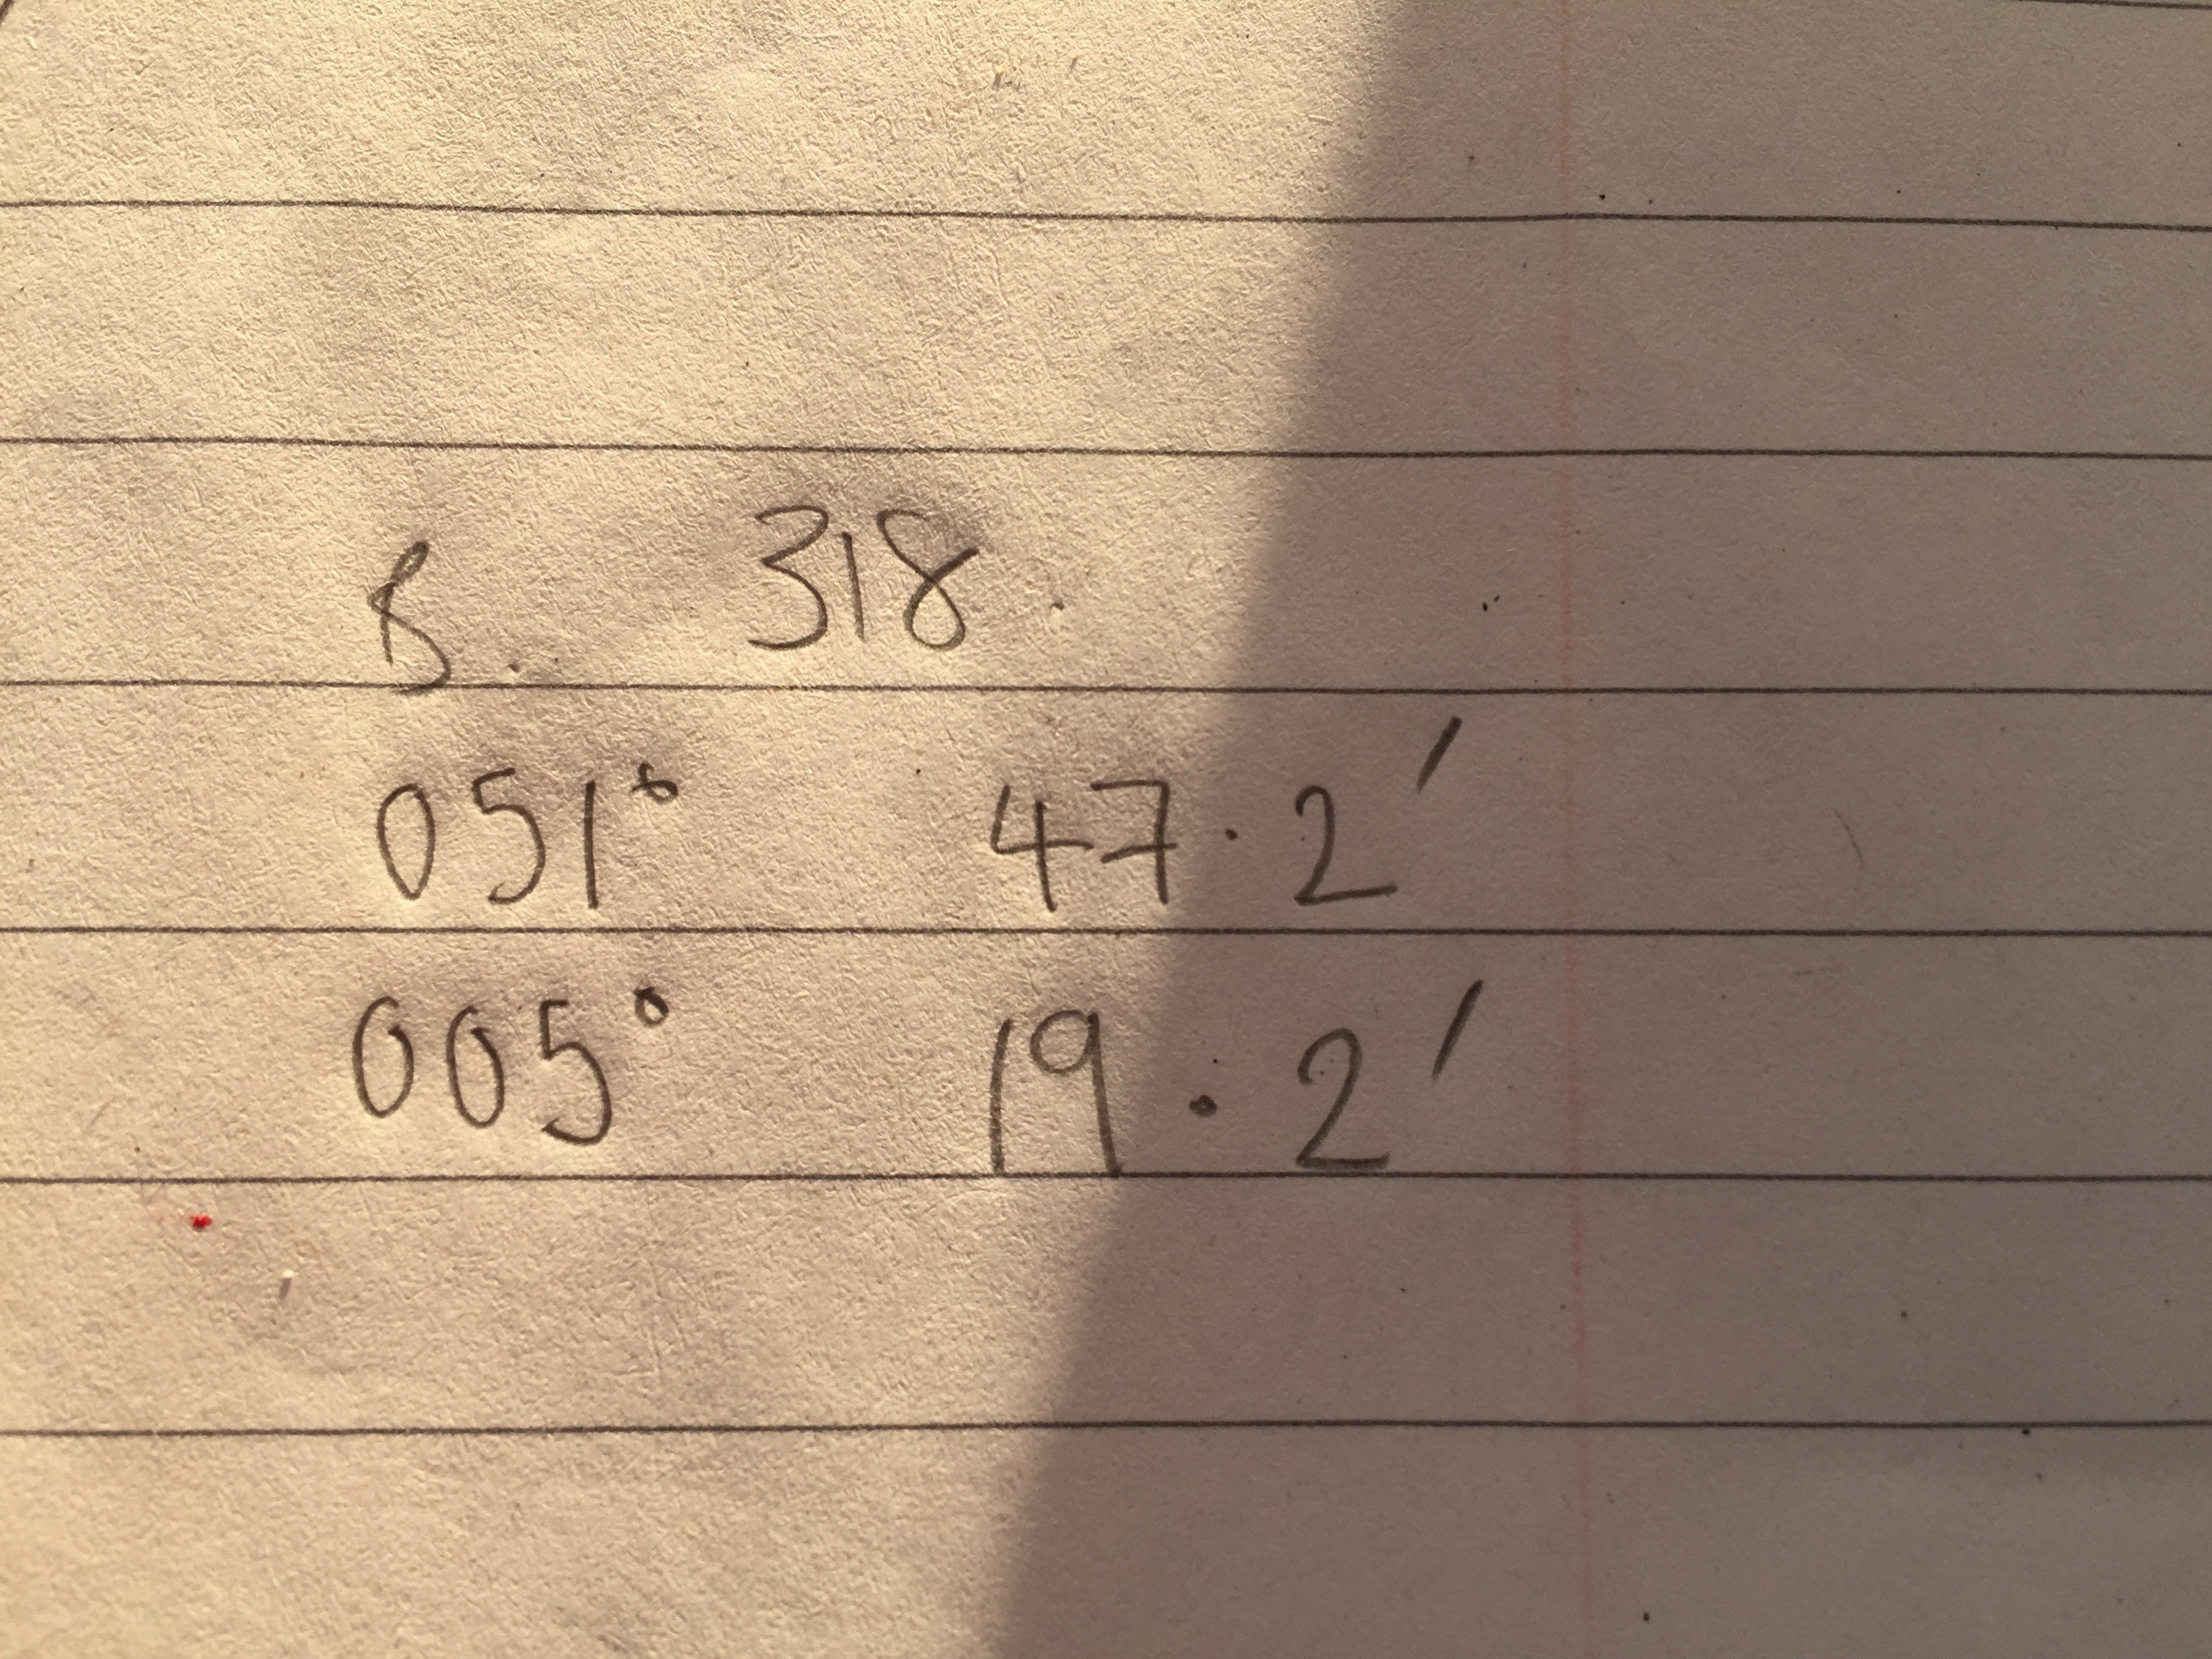 8. 318.
051° 47.2'
005° 19.2'